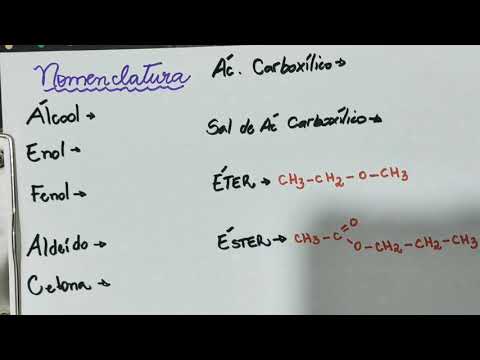 Nomenclatura
Álcool →
Enol →
Fenol →
Aldeído →
Cetona →
Ác. Carboxílico →
Sal de Ác Carboxílico →
ÉTER → CH3-CH2-O-CH3
ÉSTER → CH3-C=O
O-CH2-CH2-CH3